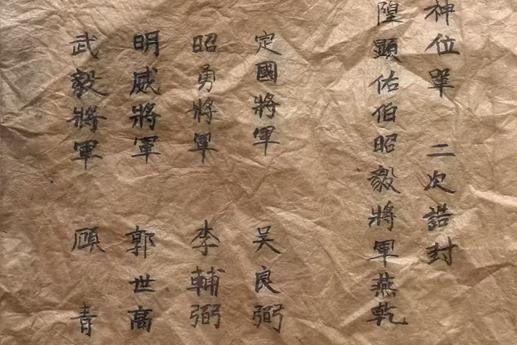 神位單 二次誥封
隍顯佑伯昭毅將軍燕乾
定國將軍 吴良弼
昭勇將軍 李輔弼
明威將軍 郭世高
武毅將軍 顾青